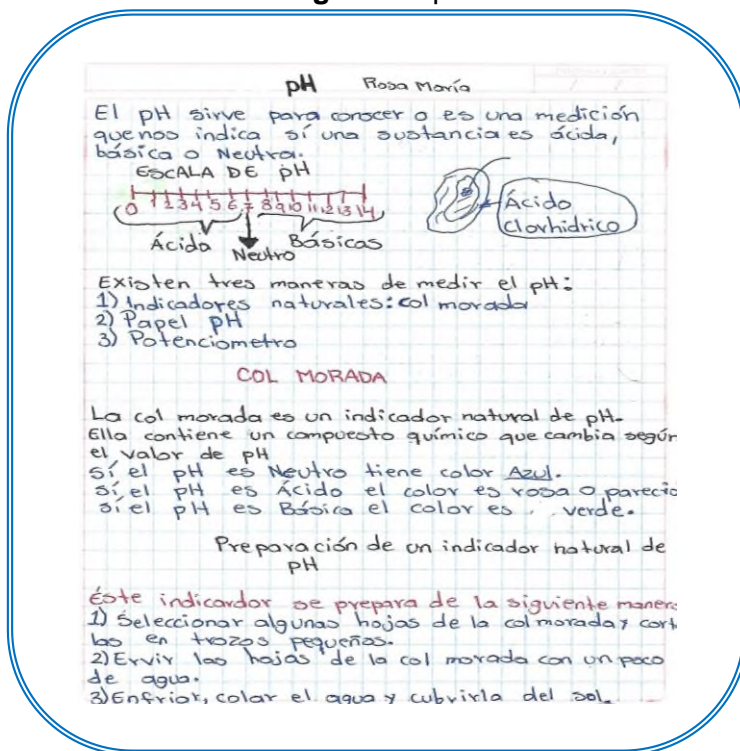 pH Rosa María
El pH sirve para conocer o es una medición
que nos indica sí una sustancia es ácida,
básica o Neutra.
ESCALA DE pH
0 1 2 3 4 5 6 7 8 9 10 11 12 13 14
Ácida Neutro Básicas
Ácido
Clorhidrico
Existen tres maneras de medir el pH:
1) Indicadores naturales: col morada
2) Papel pH
3) Potenciometro
COL MORADA
La col morada es un indicador natural de pH.
Ella contiene un compuesto químico que cambia según
el valor de pH
sí el pH es Neutro tiene color Azul.
sí el pH es Ácido el color es rosa o parecio
sí el pH es Básico el color es . verde.
Preparación de un indicador natural de
pH
Éste indicardor se prepara de la siguiente manera
1) Seleccionar algunas hojas de la col morada y cort
las en trozos pequeñas.
2) Ervir las hojas de la col morada con un poco
de agua.
3) Enfriar, colar el agua y cubrirla del sol.